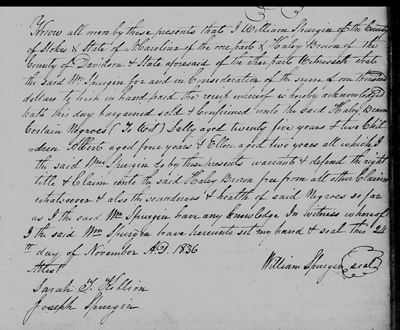 Know all men by these presents that I William Spurgin of the County
of Stokes & State of N Carolina of the one part & Haley Brown of the
County of Davidson & State aforesaid of the other part Witnesseth that
the said Wm Spurgin for and in Consideration of the sum of one thousand
dollars to him in hand paid the receipt whereof is hereby acknowledged
hath this day bargained sold & Confirmed unto the said Haley Brown
Certain Negroes (To Wit) Sally aged twenty five years & two Chil
dren Albert aged four years & Ellen aged two years all which I
the said Wm Spurgin do by these presents warrant & defend the right
title & Claim unto the said Haley Brown free from all other Claims
whatsoever & also the soundness & health of said Negroes so far
as I the said Wm Spurgin have any knowledge In witness whereof
I the said Wm Spurgin have hereunto set my hand & seal this 24
th day of November A.D. 1836
Attest
William Spurgin (seal)
Sarah T. Killion
Joseph Spurgin